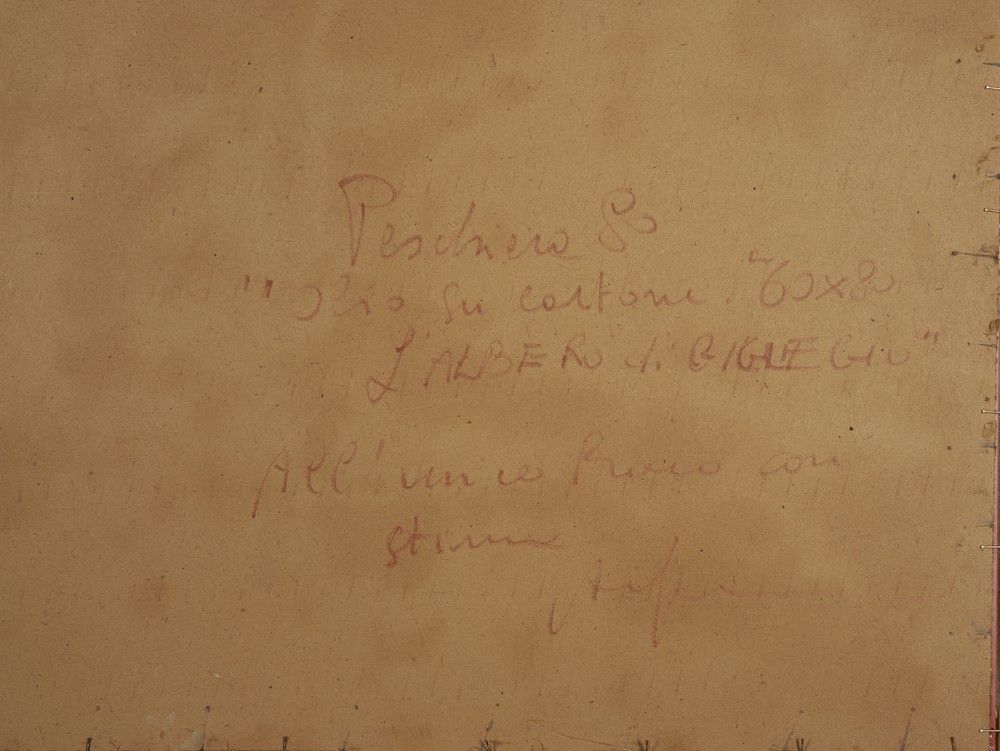 Peschiera 80
"Olio su cartone. 60x80
L'ALBERO di CILIEGIO"
All'amico con
stima